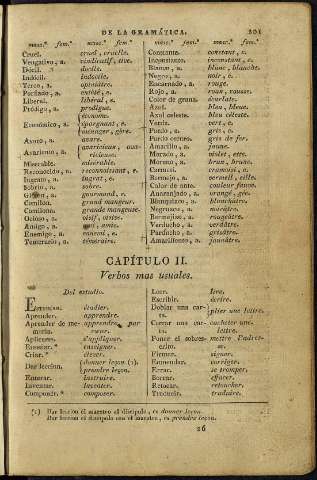 DE LA GRAMÁTICA. 201
masc.º fem.º masc.º fem.º masc.º fem.º masc.º fem.º
Cruel. cruel, cruelle.
Vengativo, a. vindicatif, tive.
Dócil. docile.
Indócil. indocile.
Terco, a.
Porfiado, a. entêté, e.
Liberal. libéral, e.
Pródigo, a. prodigue.
économe.
Económico, a. épargnant, e.
ménager, gère.
Avaro, a. avare.
Avariento, a.
Miserable. misérable.
Reconocido, a. reconnoissant, e.
Ingrato, a. ingrat, e.
Sobrio, a. sobre.
gourmand, e.
Comilon. grand mangeur.
Comilona. grande mangeuse.
Celoso, a.
Amigo, a. ami, amie.
Enemigo, a. ennemi, e.
Temerario, a. téméraire.
Constante. constant, e.
Inconstante. inconstant, e.
Blanco, a. blanc, blanche.
Negro, a. noir, e.
Encarnado, a. rouge.
Rojo, a. roux, rousse.
Color de grana. écarlate.
Azul. bleu, bleue.
Azul celeste. bleu céleste.
Verde. vert, e.
Pardo, a. gris, e.
Pardo ceñizo. gris de fer.
Amarillo, a. jaune.
Morado, a. violet, ette.
Moreno, a. brun, brune.
Carmesí. cramoisi, e.
Bermejo, a. vermeil, eille.
Color de ante. couleur fauve.
Anaranjado, a. orangé, gée.
Blanquizco, a. blanchâtre.
Negruzco, a. noirâtre.
Bermejizo, a. rougeâtre.
Verducho, a. verdâtre.
Parducho, a. grisâtre.
Amarillento, a. jaunâtre.
CAPÍTULO II.
Verbos mas usuales.
Del estudio.
Estudiar. étudier.
Aprender. apprendre.
Aprender de memoria. apprendre par cœur.
Aplicarse. s'appliquer.
Enseñar.* enseigner.
Criar.* élever.
Dar leccion. donner leçon (1).
prendre leçon.
Enterar. instruire.
Inventar. inventer.
Componer.* composer.
Leer. lire.
Escribir. écrire.
Doblar una carta. plier une lettre.
Cerrar una carta. cacheter une lettre.
Poner el sobrescrito. mettre l'adresse.
Firmar. signer.
Enmendar. corriger.
Errar. se tromper.
Borrar. effacer.
Retocar. retoucher.
Traducir. traduire.
(1) Dar leccion el maestro al discípulo, es donner leçon.
Dar leccion el discípulo con el maestro, es prendre leçon.
26